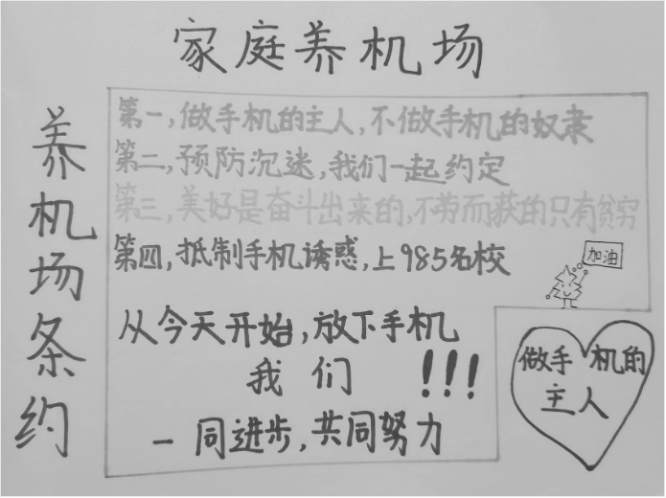 家庭养机场
养机场条约
第一,做手机的主人,不做手机的奴隶
第二,预防沉迷,我们一起约定
第三,美好是奋斗出来的,不劳而获的只有贫穷
第四,抵制手机诱惑,上985名校
加油
从今天开始,放下手机
我们!!!
一同进步,共同努力
做手机的
主人